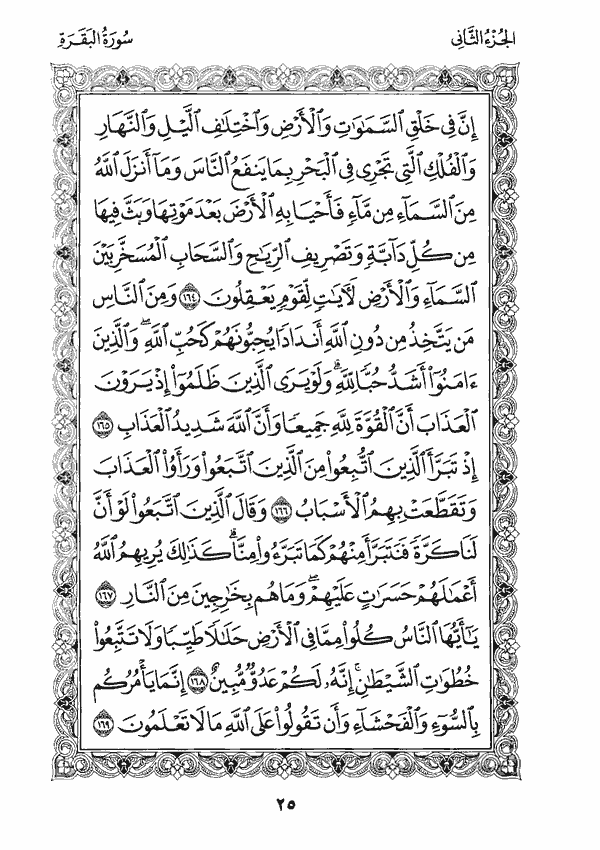 الجُزْءُ الثَّانِي
سُورَةُ البَقَرَةِ
إِنَّ فِى خَلْقِ ٱلسَّمَٰوَٰتِ وَٱلْأَرْضِ وَٱخْتِلَٰفِ ٱلَّيْلِ وَٱلنَّهَارِ
وَٱلْفُلْكِ ٱلَّتِى تَجْرِى فِى ٱلْبَحْرِ بِمَا يَنفَعُ ٱلنَّاسَ وَمَآ أَنزَلَ ٱللَّهُ
مِنَ ٱلسَّمَآءِ مِن مَّآءٍ فَأَحْيَا بِهِ ٱلْأَرْضَ بَعْدَ مَوْتِهَا وَبَثَّ فِيهَا
مِن كُلِّ دَآبَّةٍ وَتَصْرِيفِ ٱلرِّيَٰحِ وَٱلسَّحَابِ ٱلْمُسَخَّرِ بَيْنَ
ٱلسَّمَآءِ وَٱلْأَرْضِ لَءَايَٰتٍ لِّقَوْمٍ يَعْقِلُونَ ١٦٤ وَمِنَ ٱلنَّاسِ
مَن يَتَّخِذُ مِن دُونِ ٱللَّهِ أَندَادًا يُحِبُّونَهُمْ كَحُبِّ ٱللَّهِ ۖ وَٱلَّذِينَ
ءَامَنُوٓا۟ أَشَدُّ حُبًّا لِّلَّهِ ۗ وَلَوْ يَرَى ٱلَّذِينَ ظَلَمُوٓا۟ إِذْ يَرَوْنَ
ٱلْعَذَابَ أَنَّ ٱلْقُوَّةَ لِلَّهِ جَمِيعًا وَأَنَّ ٱللَّهَ شَدِيدُ ٱلْعَذَابِ ١٦٥
إِذْ تَبَرَّأَ ٱلَّذِينَ ٱتُّبِعُوا۟ مِنَ ٱلَّذِينَ ٱتَّبَعُوا۟ وَرَأَوُا۟ ٱلْعَذَابَ
وَتَقَطَّعَتْ بِهِمُ ٱلْأَسْبَابُ ١٦٦ وَقَالَ ٱلَّذِينَ ٱتَّبَعُوا۟ لَوْ أَنَّ
لَنَا كَرَّةً فَنَتَبَرَّأَ مِنْهُمْ كَمَا تَبَرَّءُوا۟ مِنَّا ۗ كَذَٰلِكَ يُرِيهِمُ ٱللَّهُ
أَعْمَٰلَهُمْ حَسَرَٰتٍ عَلَيْهِمْ ۖ وَمَا هُم بِخَٰرِجِينَ مِنَ ٱلنَّارِ ١٦٧
يَٰٓأَيُّهَا ٱلنَّاسُ كُلُوا۟ مِمَّا فِى ٱلْأَرْضِ حَلَٰلًا طَيِّبًا وَلَا تَتَّبِعُوا۟
خُطُوَٰتِ ٱلشَّيْطَٰنِ ۚ إِنَّهُۥ لَكُمْ عَدُوٌّ مُّبِينٌ ١٦٨ إِنَّمَا يَأْمُرُكُم
بِٱلسُّوٓءِ وَٱلْفَحْشَآءِ وَأَن تَقُولُوا۟ عَلَى ٱللَّهِ مَا لَا تَعْلَمُونَ ١٦٩
٢٥